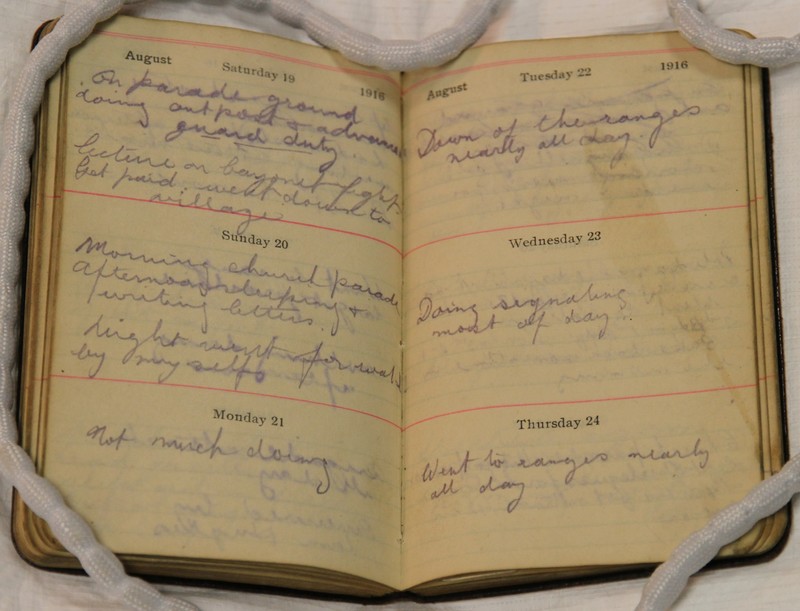 August Saturday 19 1916
On parade ground
doing outpost & advance
& guard duty
Lecture on bayonet fight
Get paid. went down to
village
Sunday 20
Morning church parade
Afternoon sleeping &
writing letters.
Night went for walk
by my selfs
Monday 21
Not much doing
August Tuesday 22 1916
Down of the ranges
nearly all day.
Wednesday 23
Doing signaling
most of day.
Thursday 24
Went to ranges nearly
all day